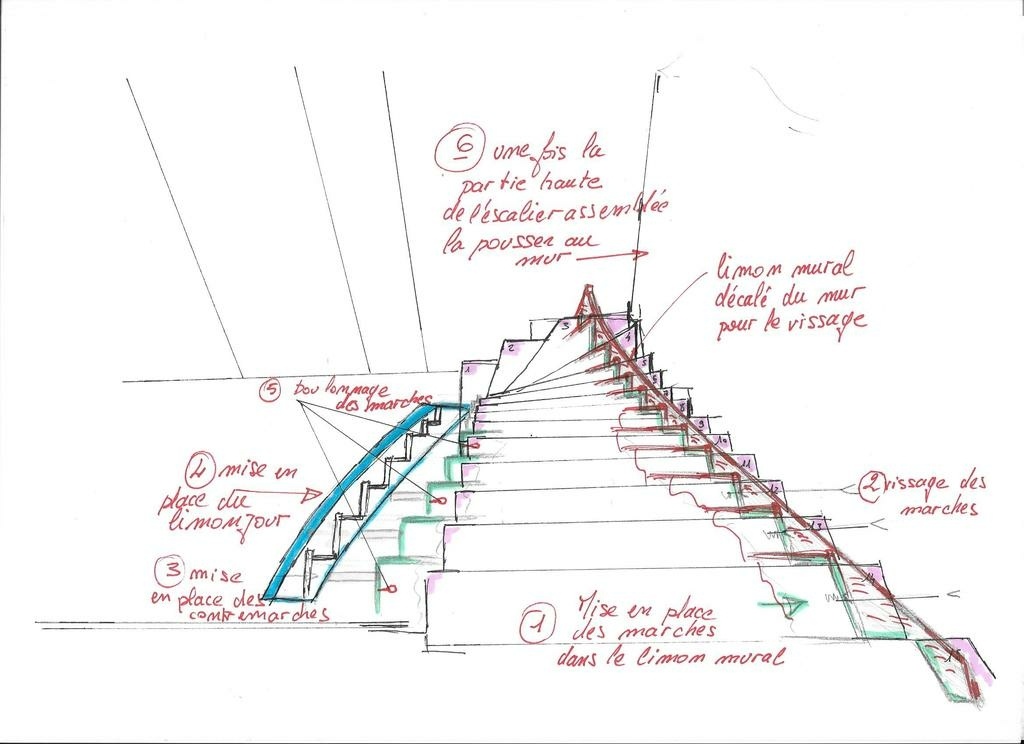 6 une fois la
partie haute
de l'éscalier assemblée
la pousser au
mur
limon mural
décalé du mur
pour le vissage
5 boulonnage
des marches
4 mise en
place du
limon jour
2 vissage des
marches
3 mise
en place des
contremarches
1 Mise en place
des marches
dans le limon mural
1
2
3
4
5
6
7
8
9
10
11
12
13
14
15